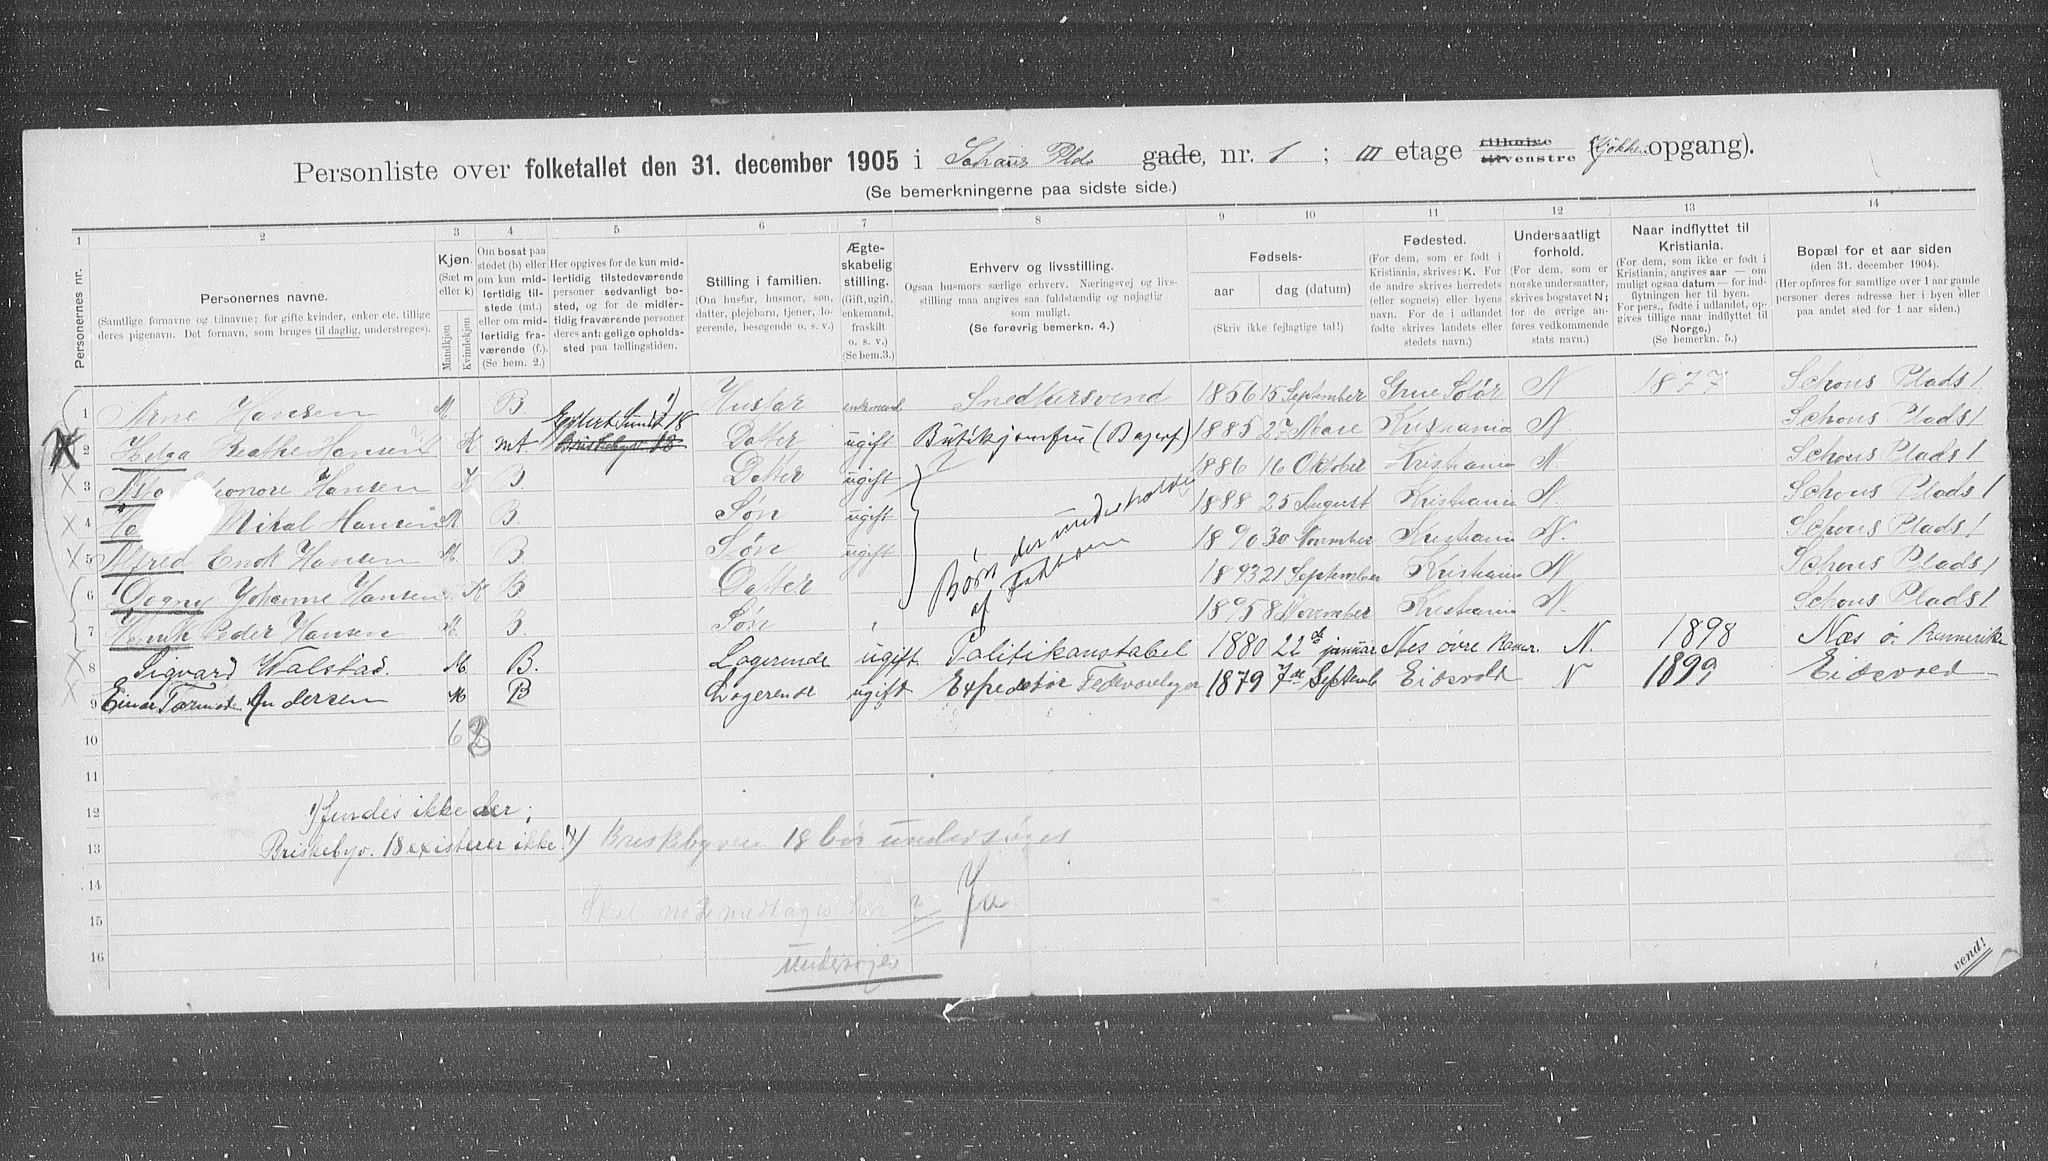 Personliste over folketallet den 31. december 1905 i Schous Plds gade, nr. 1 ; III etage tilhøjre tilvenstre (Kjøkkenopgang).
(Se bemerkningerne paa sidste side.)
1 2 3 4 5 6 7 8 9 10 11 12 13 14
Personernes nr.
Personernes navne.
(Samtlige fornavne og tilnavne; for gifte kvinder, enker etc. tillige
deres pigenavn. Det fornavn, som bruges til daglig, understreges).
Kjøn.
(Sæt m
eller k)
Mandkjøn
Kvindekjøn
Om bosat paa
stedet (b) eller
om kun mid-
lertidig til-
stede (mt.)
eller om mid-
lertidig fra-
værende (f.).
(Se bem. 2.)
Her opgives for de kun mid-
lertidig tilstedeværende
personer sedvanlig bo-
sted, og for de midler-
tidig fraværende personer
deres antagelige opholds-
sted paa tællingstiden.
Stilling i familien.
(Om husfar, husmor, søn,
datter, plejebarn, tjener, lo-
gerende, besøgende o. s. v.)
Ægte-
skabelig
stilling.
(Gift, ugift,
enkemand,
fraskilt
o. s. v.)
(Se bem.3.)
Erhverv og livsstilling.
Ogsaa husmors særlige erhverv. Næringsvej og livs-
stilling maa angives saa fuldstændig og nøjagtig
som muligt.
(Se forøvrig bemerkn. 4.)
Fødsels-
aar dag (datum)
(Skriv ikke fejlagtige tal!)
Fødested.
(For dem, som er født i
Kristiania, skrives: K. For
de andre skrives herredets
(eller sognets) eller byens
navn. For de i udlandet
fødte skrives landets eller
stedets navn.)
Undersaatligt
forhold.
(For dem, som er
norske undersaatter,
skrives bogstavet N;
for de øvrige an-
føres vedkommende
stats navn.)
Naar indflyttet til
Kristiania.
(For dem, som ikke er født i
Kristiania, angives aar — om
muligt ogsaa datum — for ind-
flytningen her til byen.
For pers., fødte i udlandet, op-
gives tillige naar indflyttet til
Norge.)
(Se bemerkn. 5.)
Bopæl for et aar siden
(den 31. december 1904).
(Her opføres for samtlige over 1 aar gamle
personer deres adresse her i byen eller
paa andet sted for 1 aar siden.)
1 Arne Hansen M. B Husfar enkemand Snedkersvend 1856 15 September Grue Solør N 1877 Schous Plads 1
Eilert Sundt 18 1)
2 Helga Beathe Hansen K mt Briskebyv 18 Datter ugift Butikjomfru (Bageri) 1885 27 Mars Kristiania N. Schous Plads 1
3 Hansen K B. Datter ugift 1886 16 Oktober Kristiania N. Schous Plads 1
4 Mikal Hansen M B. Søn ugift 1888 25 August Kristiania N Schous Plads 1
5 Alfred Enok Hansen M. B. Søn ugift 1890 30 November Kristiania N. Schous Plads 1
Børn der underholdes
af Faderen
6 Dagny Johanne Hansen K B Datter 1893 21 September Kristiania N Schous Plads 1
7 Henrik Peder Hansen M. B. Søn 1895 8 November Kristiania N. Schous Plads 1
8 Sigvard Walstad. M B. Logerende ugift Politikonstabel 1880 22de januar Nes øvre Romer. N. 1898 Næs ø. Romerike
9 Einar Tormod Andersen M B Logerende ugift 1879 7de Septemb Eidsvold N 1899 Eidsvold
10 6 2
11
12 1) fundes ikke der;
13 Briskebyv. 18 existerer ikke. 1) Briskebyveien 18 bør undersøges
14
15 Skal no 2 medtages her? Ja
16 undersøges
vend!